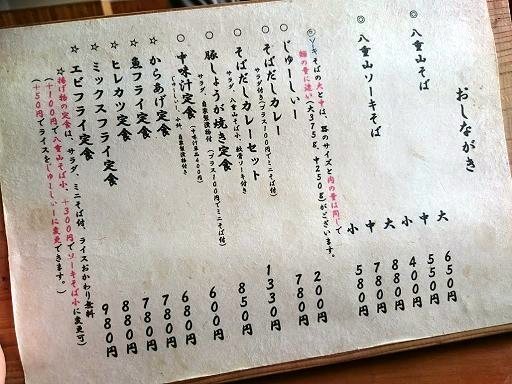 おしながき
◎八重山そば 大 650円
中 550円
小 400円
◎八重山ソーキそば 大 880円
中 780円
小 580円
◎ソーキそばの大と中は、器のサイズと肉の量は同じで
麺の量に違い(大375g、中250g)がございます。
○じゅーしぃー 200円
○そばだしカレー 780円
サラダ付き(プラス100円でミニそば付)
○そばだしカレーセット 1330円
サラダ、八重山そば小、軟骨ソーキ付き
○豚しょうが焼き定食 850円
サラダ、自家製漬物付(プラス100円でミニそば付)
○中味汁定食 600円
じゅーしぃー、小鉢、自家製漬物付き
☆からあげ定食 680円
☆魚フライ定食 780円
☆ヒレカツ定食 780円
☆ミックスフライ定食 880円
☆エビフライ定食 980円
☆揚げ物の定食は、サラダ、ミニそば付、ライスおかわり無料
(+100円で八重山そば小、+300円でソーキそば小に変更可)
(+50円でライスをじゅーしぃーに変更できます。)